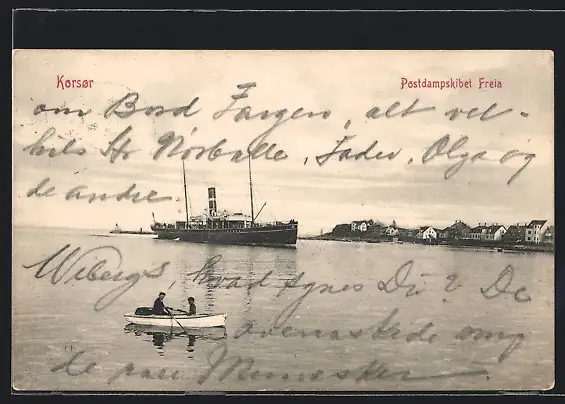 Korsør
Postdampskibet Freia
om Bord Fargen, alt vel-
hils Hr Nørballe, Fader, Olga og
de andre.
Wibergs hvad synes Du? De
ovenstående omg
de paa Mennesker.